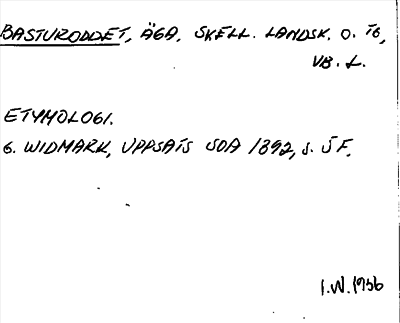 BASTURODDET, ÄGA, SKELL. LANDSK. O. TG,
VB. L.
ETYMOLOGI.
G. WIDMARK, UPPSATS SOA 1392, S. 5 F.
I.W. 1956